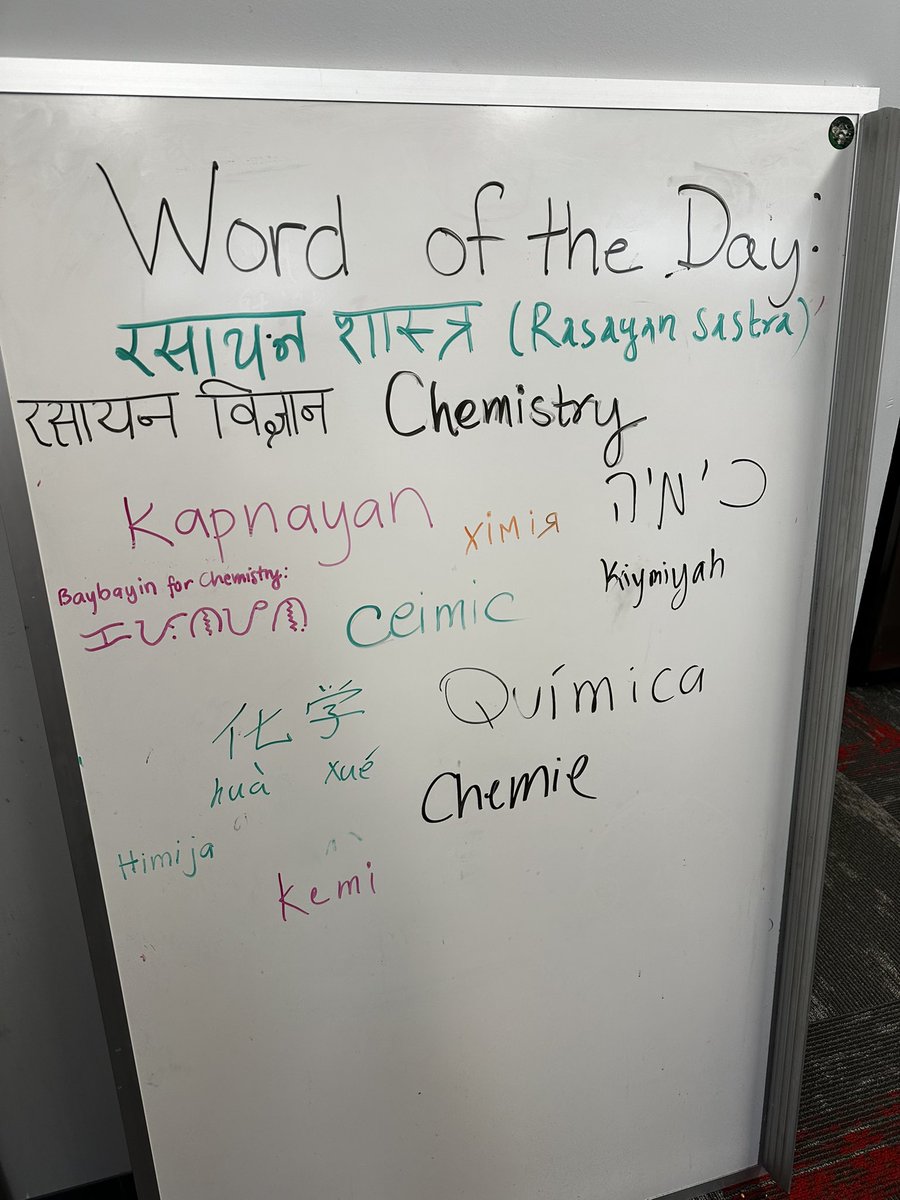 Word of the Day:
रसायन शास्त्र (Rasayan sastra)
रसायन विज्ञान Chemistry
Kapnayan
хімія
כימיה
Kiymiyah
Baybayin for Chemistry:
Ceimic
Química
化学
huà xué
Chemie
Himija
Kemi